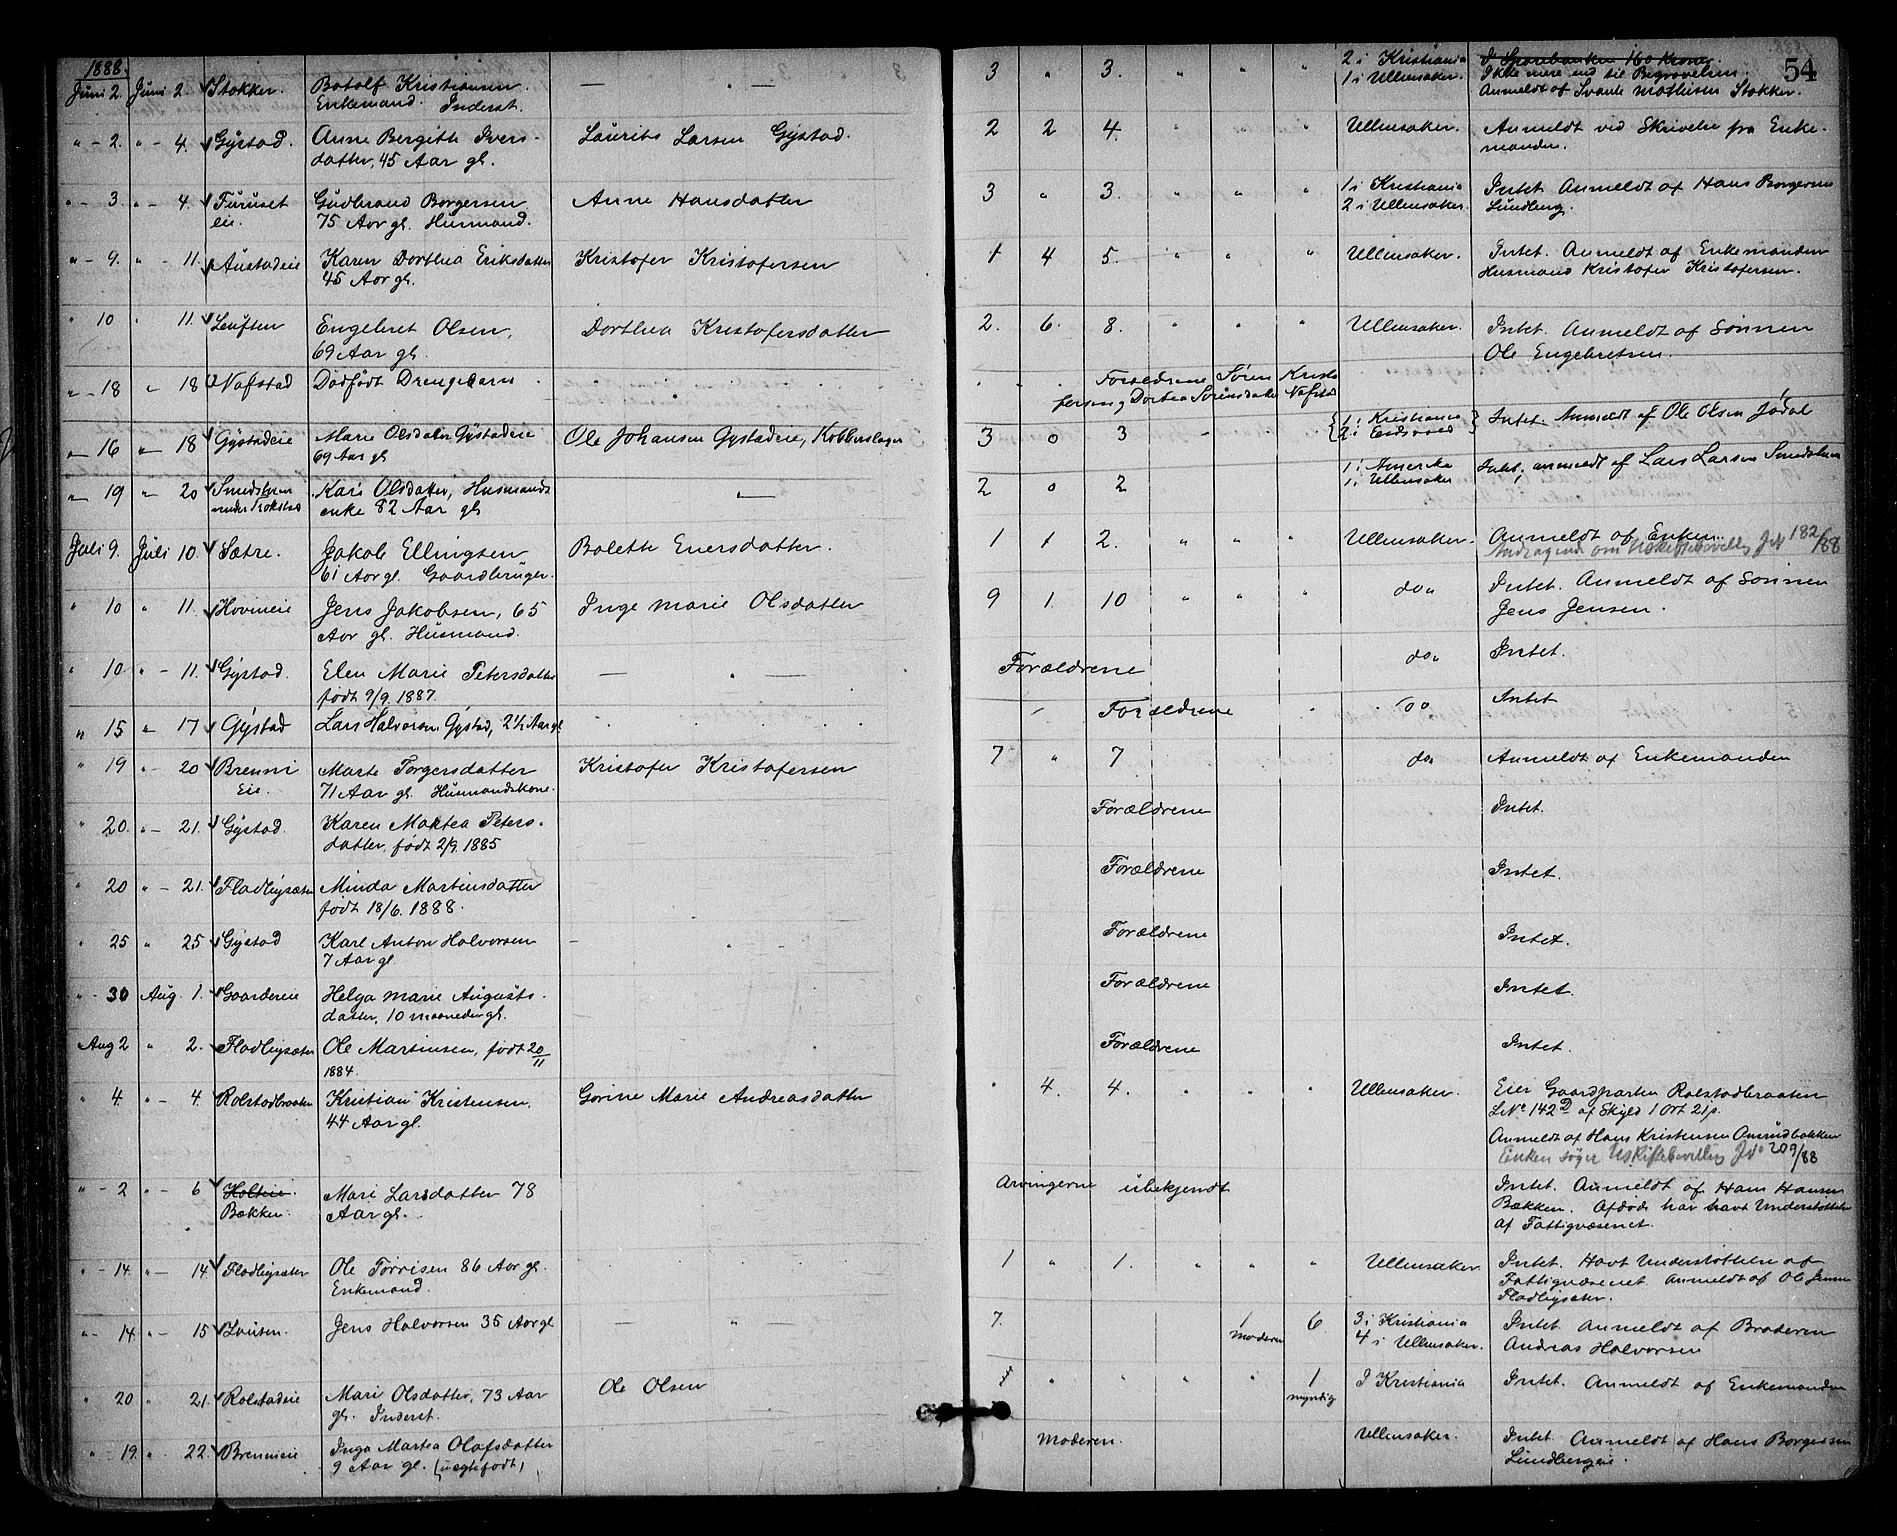 54
1888.
Juni 2. Juni 2. Stokker. Botolf Kristiansen — " — 3 " 3. " " " 2 i Kristiania I Sparebanken 160 Kroner.
Enkemand. Inderst. 1 i Ullensaker. Ikke mere end til Begravelsen.
Anmeldt af Svante Mathisen Stokker.
" - 2. " - 4. Gystad. Anne Bergitte Ivers- Laurits Larsen Gystad. 2 2 4. " " " Ullensaker. Anmeldt ved Skrivelse fra Enke-
datter, 45 Aar gl. manden.
" - 3. " - 4. Furuset Gudbrand Borgersen Anne Hansdatter 3 " 3. " " " 1 i Kristiania Intet. Anmeldt af Hans Borgersen
eie. 75 Aar gl. Husmand. 2 i Ullensaker. Lundberg.
" - 9. " - 11. Austadeie Karen Dorthea Eriksdatter Kristofer Kristofersen 1 4 5. " " " Ullensaker. Intet. Anmeldt af Enkemanden
45 Aar gl. Husmand Kristofer Kristofersen.
" 10 " 11. Luften Engebret Olsen, Dorthea Kristofersdatter 2. 6. 8. " " " Ullensaker. Intet. Anmeldt af Sønnen
69 Aar gl. Ole Engebretsen.
" - 18 " 18 Nafstad Dødfødt Drengebarn . . . Forældrene Søren Kristo
fersen og Dortea Sørensdatter Nafstad
" 16 " 18 Gystadeie Marie Olsdatter Gystadeie Ole Johansen Gystadeie, Kobberslager 3 0 3 - 1 i Kristiania Intet. Anmeldt af Ole Olsen Jødal
69 Aar gl 2 i Eidsvold
" 19 " 20 Smedstuen Kari Olsdatter, Husmands — 2 0 2 1 i Amerika Intet, anmeldt af Lars Larsen Smedstuen
under enke 82 Aar gl 1 i Ullensaker
Juli 9. Juli 10. Sætre. Jakob Ellingsen Bolette Enersdatter. 1 1 2. " " " Ullensaker. Anmeldt af Enken.
61 Aar gl. Gaardbruger. Andragende om Uskiftebevilling J№ 182/88
" 10 " 11. Hovineie Jens Jakobsen, 65 Inge Marie Olsdatter 9 1. 10 " " " do " Intet. Anmeldt af Sønnen
Aar gl. Husmand. Jens Jensen.
" 10 " - 11. Gystad. Elen Marie Petersdatter — " — Forældrene do " Intet.
født 9/9. 1887.
" 15 " 17 Gystad Lars Halvorsen Gystad, 2½ Aar gl . . . Forældrene do Intet
" 19 " - 20 Brenni Marte Torgersdatter Kristofer Kristofersen 7 " 7 do " Anmeldt af Enkemanden
Eie. 71 Aar gl. Husmandskone.
" 20. " - 21. Gystad. Karen Martea Peters- Forældrene Intet.
datter, født 2/9. 1885
" 20 " - 21. Fladbysæter Minda Martinsdatter Forældrene Intet.
født 18/6. 1888.
" 25 " 25 Gystad Karl Anton Halvorsen — " - Forældrene Intet.
7 Aar gl.
" - 30 Aug. 1. Gaardereie Helga Marie Augusts- Forældrene Intet.
datter, 10 maaneder gl.
Aug 2 " 2. Fladbysæter Ole Martinsen, født 20/11 Forældrene Intet.
1884.
" 4. " - 4. Rolstadbraaten Kristian Kristensen. Gorine Marie Andreasdatter " 4. 4. " " " Ullensaker. Eier Gaardparten Rolstadbraaten
44 Aar gl. L№ 142 D af Skyld 1 Ort 21 s.
Anmeldt af Hans Kristensen
Enken søger Uskiftebevilling J№ 209/88
" - 2 " - 6 Holteie. Mari Larsdatter 78 Arvingerne ubekjendt Intet. Anmeldt af Hans Hansen
Bækken. Aar gl. Bækken. Afdøde har havt Understøttelse
af Fattigvæsenet.
" - 14. " - 14. Fladbysæter Ole Torrisen 86 Aar gl. 1 " 1. " " " Ullensaker Intet. Havt Understøttelse af
Enkemand. Fattigvæsenet. Anmeldt af Ole Jensen
Fladbysæter.
" - 14. " - 15 Jens Halvorsen 35 Aar gl — " — 7. 1 6 3 i Kristiania Intet. Anmeldt af Broderen
moderen 4 i Ullensaker. Andreas Halvorsen
" 20 " 21. Rolstadeie Mari Olsdatter, 73 Aar Ole Olsen 1 " " " " 1 I Kristiania Intet. Anmeldt af Enkemanden
gl. Inderst. myndig
" - 19. " - 22. Brennieie Inga Martea Olafsdatter Moderen. Ullensaker. Intet. Anmeldt af Hans Borgersen
9 Aar gl. (uægtefødt) Lundbergeie.